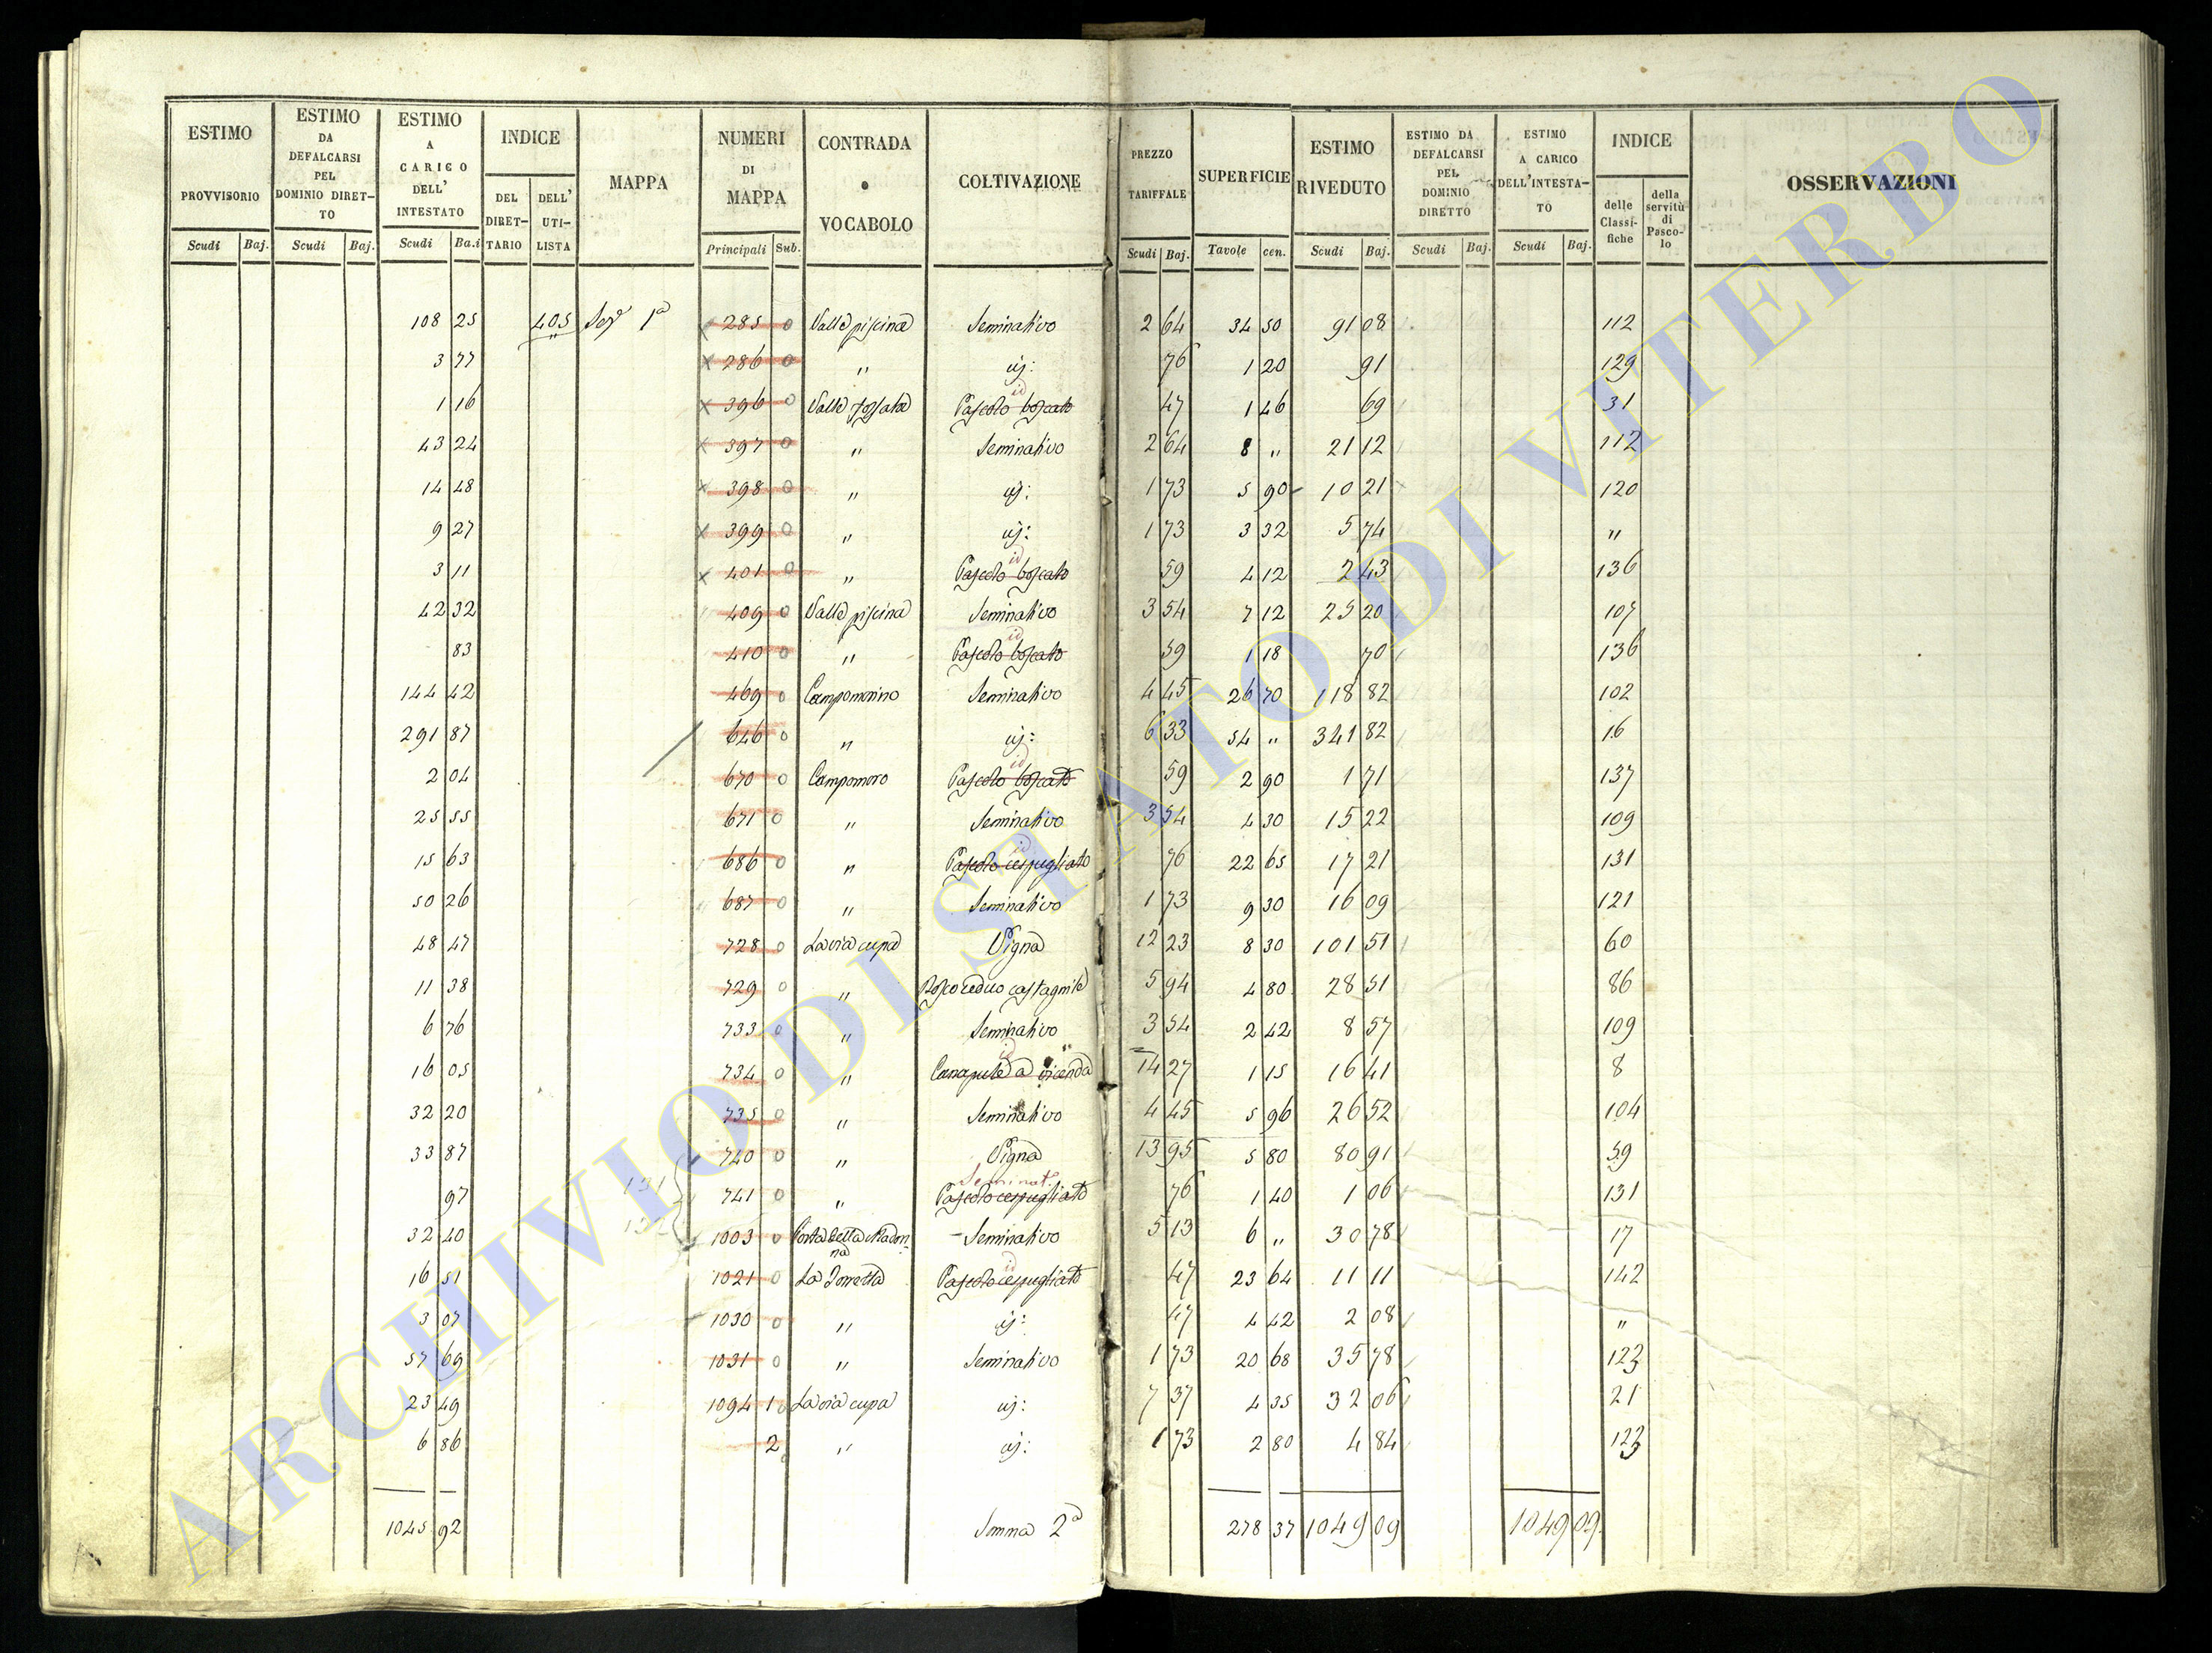 ESTIMO PROVVISORIO Scudi Baj.
ESTIMO DA DEFALCARSI PEL DOMINIO DIRET-TO Scudi Baj.
ESTIMO A CARICO DELL' INTESTATO Scudi Ba.i
INDICE DEL DIRET-TARIO DELL' UTI-LISTA
MAPPA
NUMERI DI MAPPA Principali Sub.
CONTRADA o VOCABOLO
COLTIVAZIONE
PREZZO TARIFFALE Scudi Baj.
SUPERFICIE Tavole cen.
ESTIMO RIVEDUTO Scudi Baj.
ESTIMO DA DEFALCARSI PEL DOMINIO DIRETTO Scudi Baj.
ESTIMO A CARICO DELL'INTESTA-TO Scudi Baj.
INDICE delle Classi-fiche della servitù di Pasco-lo
OSSERVAZIONI
108 25 405 Sez.e 1a 285 0 Valle piscina Seminativo 2 64 34 50 91 08 112
3 77 " 286 0 " id: 76 1 20 91 129
1 16 396 0 Valle fossata Pascolo boscato id 47 1 46 69 31
43 24 397 0 " Seminativo 2 64 8 " 21 12 112
14 48 398 0 " id: 1 73 5 90 10 21 120
9 27 399 0 " id: 1 73 3 32 5 74 "
3 11 401 0 " Pascolo boscato id 59 4 12 2 43 136
42 32 409 0 Valle piscina Seminativo 3 54 7 12 25 20 107
83 410 0 " Pascolo boscato id 59 1 18 70 136
144 42 469 0 Campomorino Seminativo 4 45 26 70 118 82 102
291 87 646 0 " id: 6 33 54 " 341 82 16
2 04 670 0 Campomoro Pascolo boscato id 59 2 90 1 71 137
25 55 671 0 " Seminativo 3 54 4 30 15 22 109
15 63 686 0 " Pascolo cespugliato id 76 22 65 17 21 131
50 26 687 0 " Seminativo 1 73 9 30 16 09 121
48 47 728 0 La via cupa Vigna 12 23 8 30 101 51 60
11 38 729 0 " Bosco ceduo castagnile 5 94 4 80 28 51 86
6 76 733 0 " Seminativo 3 54 2 42 8 57 109
16 05 734 0 " Canapule a vicenda id 14 27 1 15 16 41 8
32 20 735 0 " Seminativo 4 45 5 96 26 52 104
33 87 740 0 " Vigna 13 95 5 80 80 91 59
97 131 741 0 " Pascolo cespugliato Seminat. 76 1 40 1 06 131
32 40 1003 0 Porta della Madonna Seminativo 5 13 6 " 30 78 17
16 51 1021 0 La Torretta Pascolo cespugliato id 47 23 64 11 11 142
3 07 1030 0 " id: 47 4 42 2 08 "
57 69 1031 0 " Seminativo 1 73 20 68 35 78 123
23 49 1094 1 0 La via cupa id: 7 37 4 35 32 06 21
6 86 2 0 " id: 1 73 2 80 4 84 123
1045 92 Somma 2a 278 37 1049 09 1049 09
ARCHIVIO DI STATO DI VITERBO